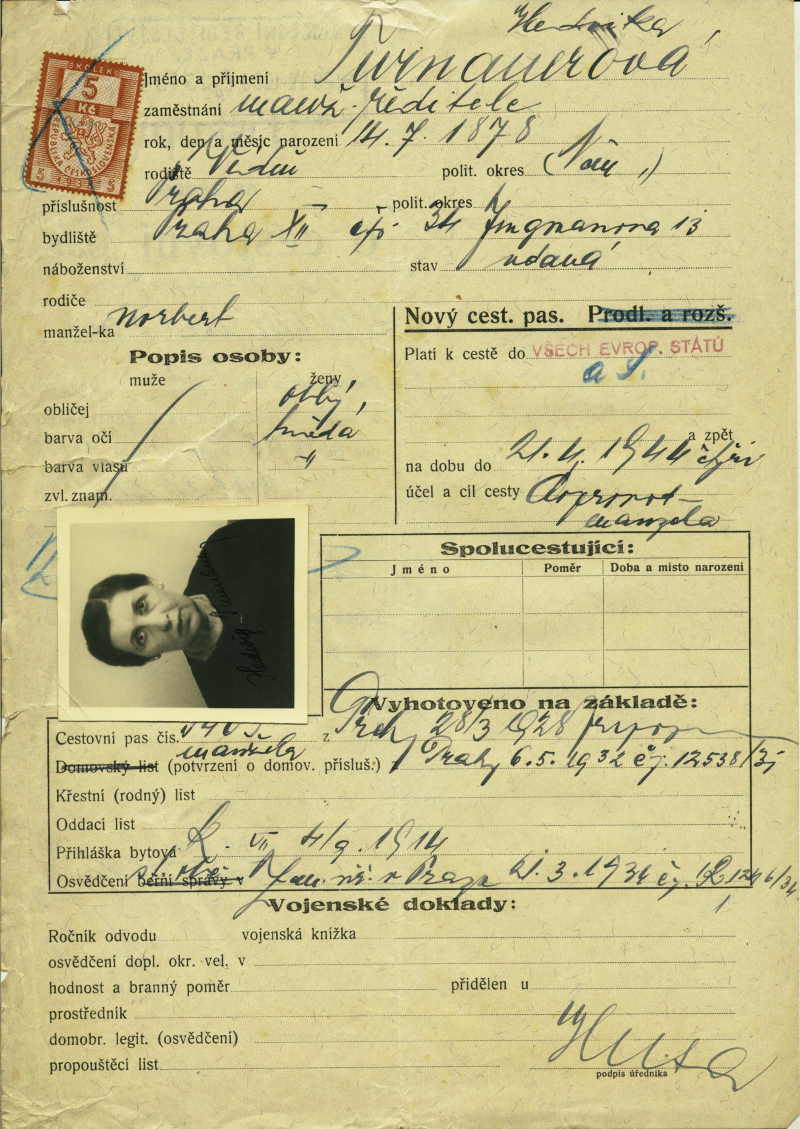 Hedvika,
Jméno a příjmení Turnauerová
zaměstnání manž. ředitele
rok, den a měsíc narození 14. 7. 1878
rodiště Vídni polit. okres
příslušnost Praha polit. okres
bydliště Praha XII čp. 34 Jungmanova 13
náboženství stav vdaná
rodiče
manžel-ka Norbert
KOLEK
5
Kč
REPUBLIKA ČESKOSLOVENSKÁ
5 5
Nový cest. pas. Prodl. a rozš.
Platí k cestě do VŠECH EVROP. STÁTŮ
a zpět
na dobu do
účel a cíl cesty Doprovod
manžela
Popis osoby:
muže ženy
obličej oblý,
barva očí hnědá
barva vlasů "
zvl. znam.
Spolucestující:
Jméno Poměr Doba a místo narození
Vyhotoveno na základě:
Cestovní pas čís. z 28/3 1928
manžela
Domovský list (potvrzení o domov. přísluš.) Prahy 6. 5. 1932 čj. 12538/31
Křestní (rodný) list
Oddací list
Přihláška bytová R. VII 4/9. 1914
Osvědčení berní správy v Praze 21. 3. 1934
Vojenské doklady:
Ročník odvodu vojenská knížka
osvědčení dopl. okr. vel. v
hodnost a branný poměr přidělen u
prostředník
domobr. legit. (osvědčení)
propouštěcí list
podpis úředníka